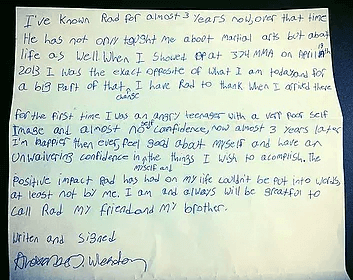 I've known Rad for almost 3 years now, over that time
He has not only taught me about Martial arts but about
life as Well. When I Showed up at 374 MMA on April
2013 I was the exact opposite of what I am today and for
a big Part of that change, I have Rad to thank When I arrived there
for the first time I was an angry teenager with a very Poor self
Image and almost no self confidence, now almost 3 years later
I'm happier then ever, feel good about myself and have an
Unwaivering confidence in myself and the things I wish to acomplish. The
Positive impact Rad has had on my life couldn't be put into words,
at least not by me. I am and always will be greatful to
Call Rad my friend and my brother.
Writen and Signed